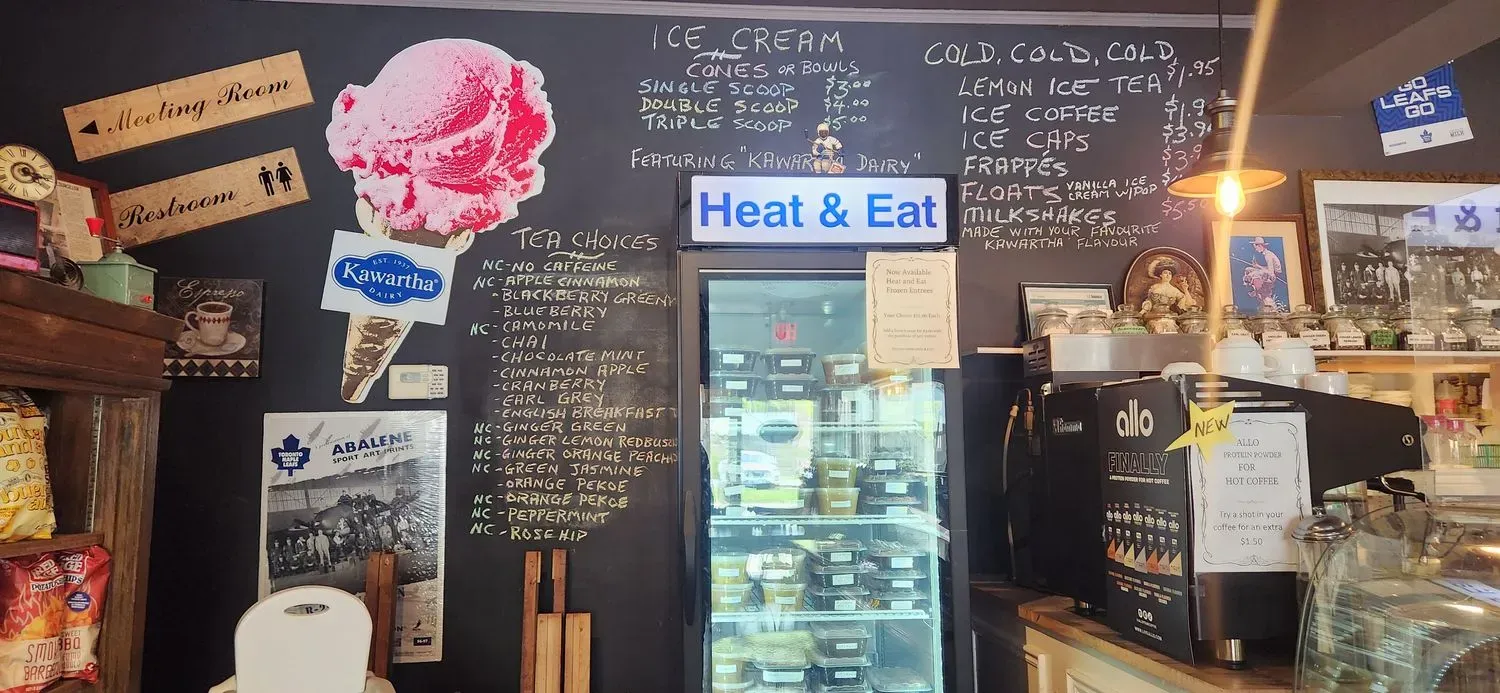 Meeting Room
Restroom
Espresso
EST. 1937
Kawartha
DAIRY
TORONTO
MAPLE
LEAFS
ABALENE
SPORT ART PRINTS
ICE CREAM
CONES OR BOWLS
SINGLE SCOOP $3.00
DOUBLE SCOOP $4.00
TRIPLE SCOOP $5.00
FEATURING "KAWAR A DAIRY"
TEA CHOICES
NC-NO CAFFEINE
NC-APPLE CINNAMON
-BLACKBERRY GREEN
-BLUEBERRY
NC-CAMOMILE
-CHAI
-CHOCOLATE MINT
-CINNAMON APPLE
-CRANBERRY
-EARL GREY
-ENGLISH BREAKFAST T
NC-GINGER GREEN
NC-GINGER LEMON REDBUS
NC-GINGER ORANGE PEACH
NC-GREEN JASMINE
-ORANGE PEKOE
NC-ORANGE PEKOE
NC-PEPPERMINT
NC-ROSEHIP
Heat & Eat
Now Available
Heat and Eat
Frozen Entrees
COLD, COLD, COLD,
LEMON ICE TEA $1.95
ICE COFFEE $1.9
ICE CAPS $3.9
FRAPPÉS $3.
FLOATS VANILLA ICE
CREAM W/POP
MILKSHAKES $5.5
MADE WITH YOUR FAVOURITE
KAWARTHA FLAVOUR
GO
LEAFS
GO
allo
FINALLY
A PROTEIN POWDER FOR HOT COFFEE
NEW
ALLO
PROTEIN POWDER
FOR
HOT COFFEE
Try a shot in your
coffee for an extra
$1.50
POTATO CHIPS
SMO BBQ
BARBE